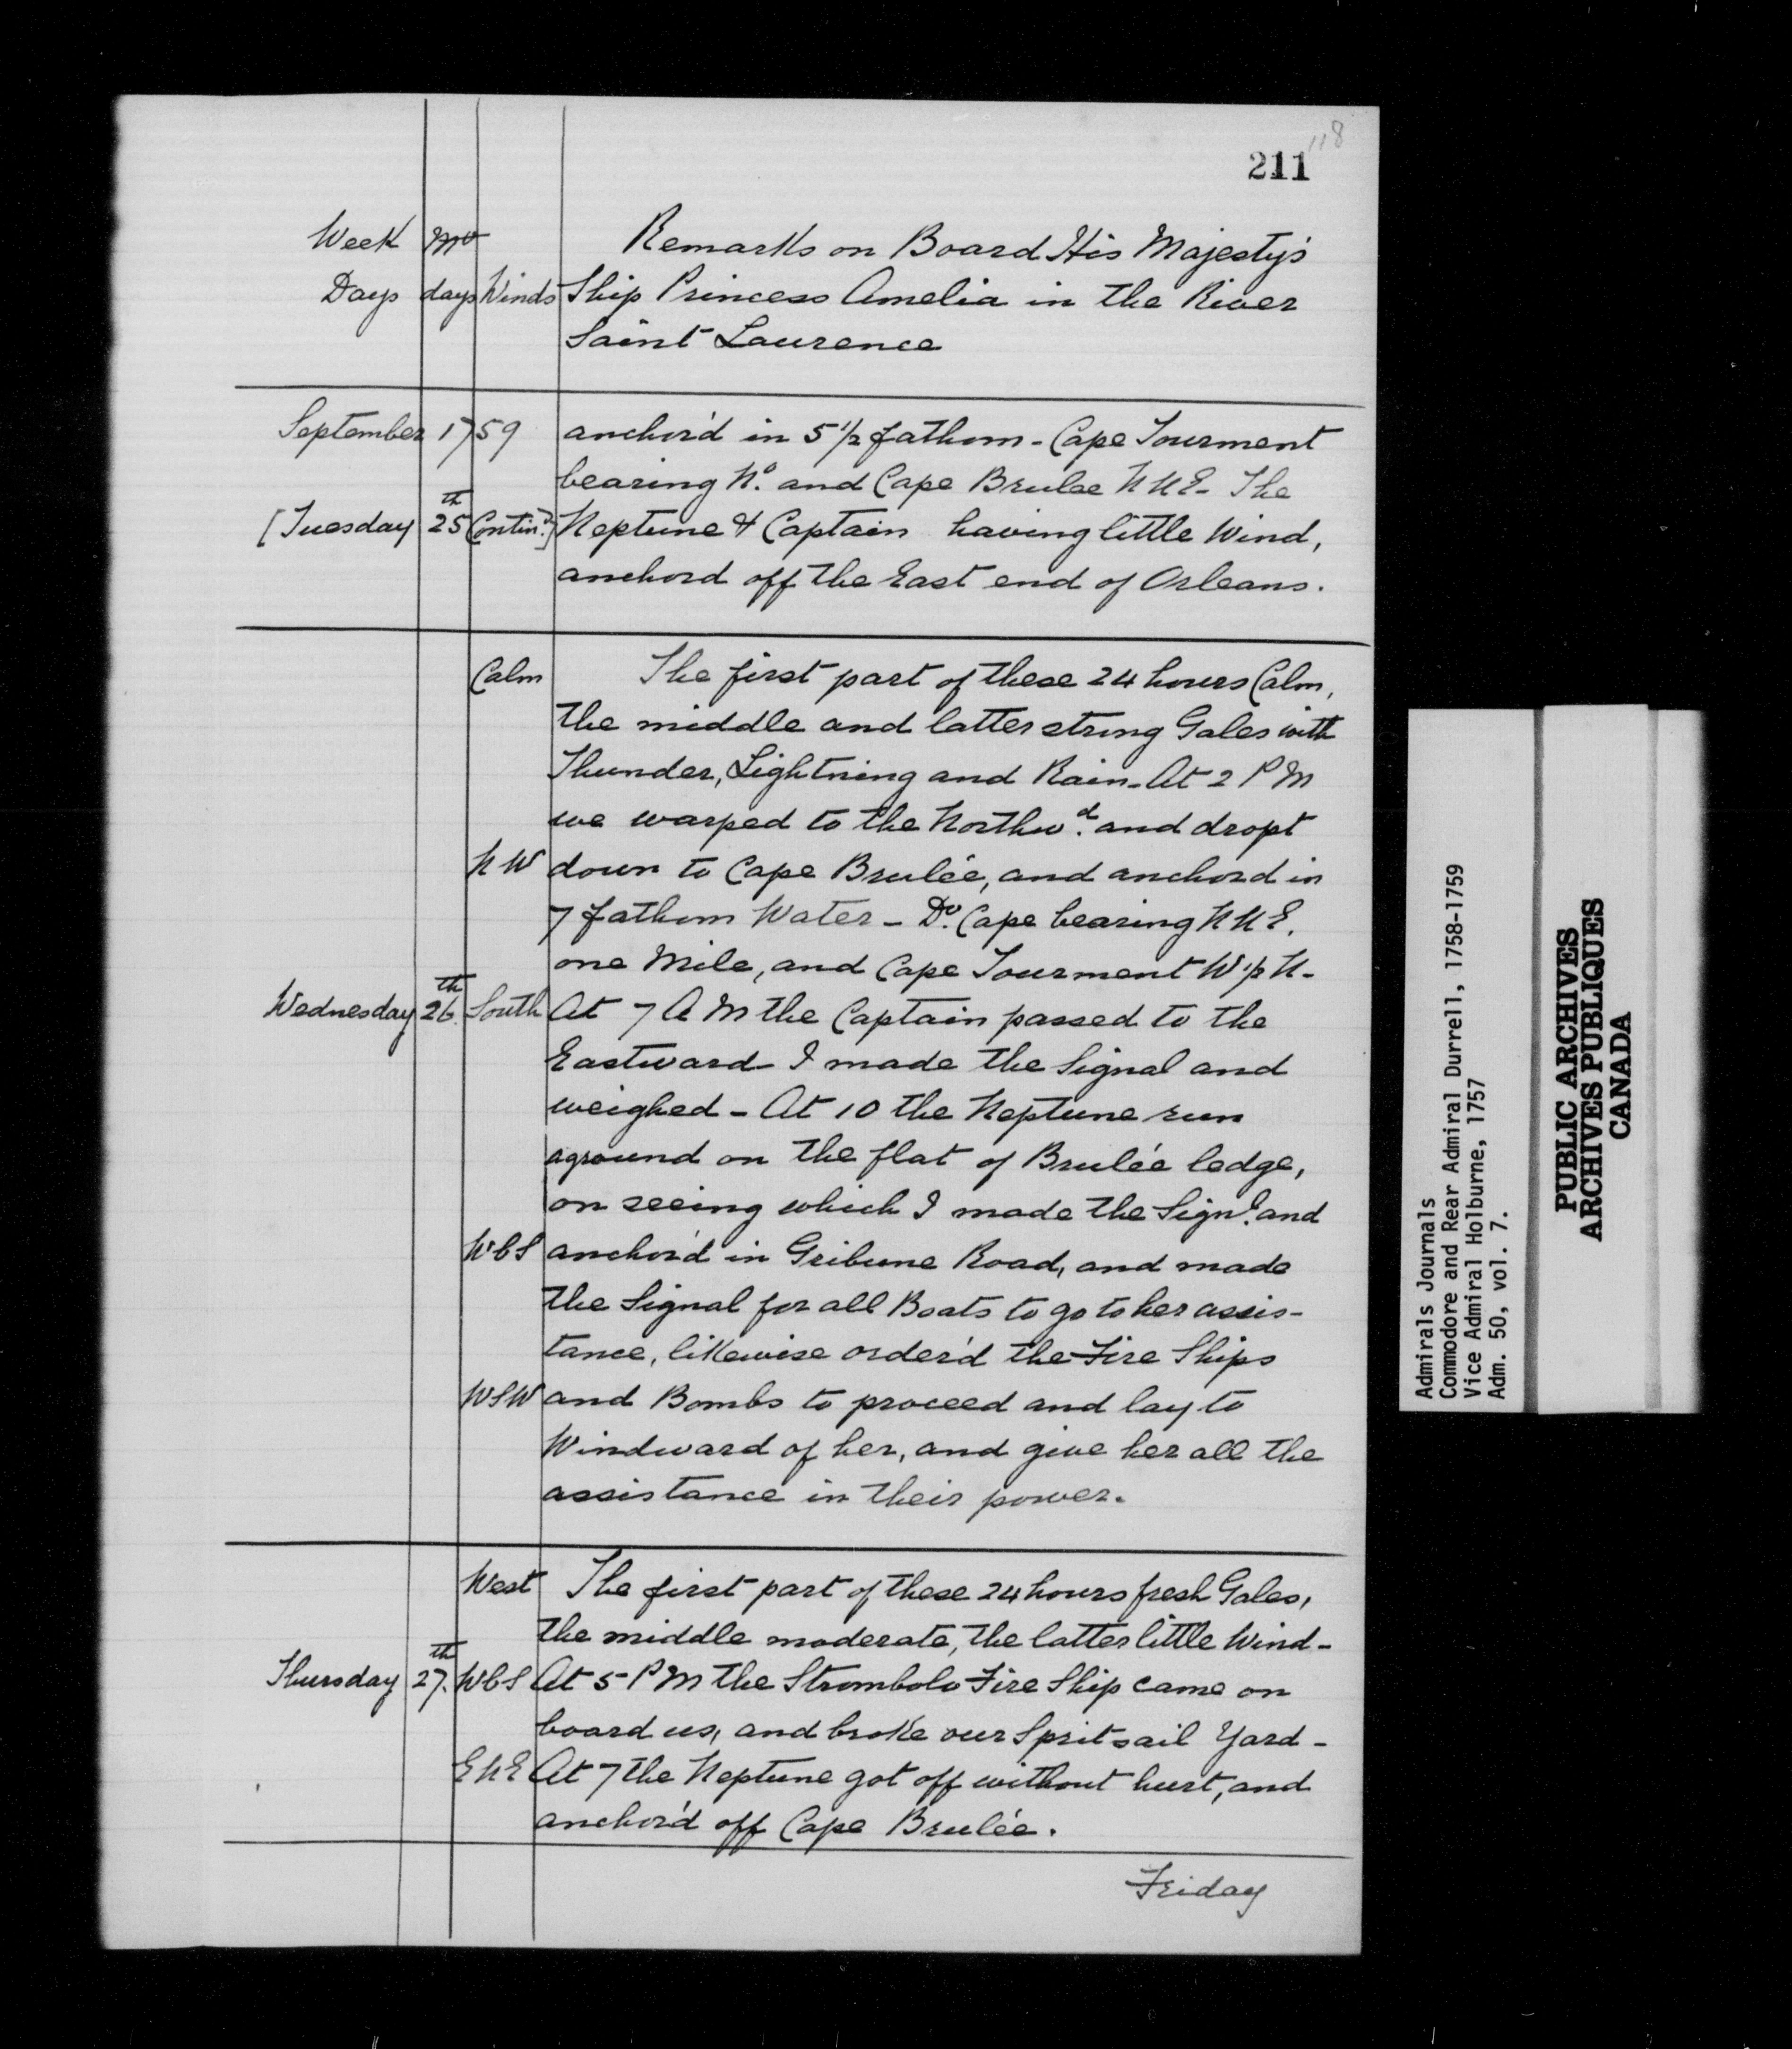 118
211
Week Mo Remarks on Board His Majesty's
Days days Winds Ship Princess Amelia in the River
Saint Laurence
September 1759 anchor'd in 5 1/2 fathom - Cape Tourment
bearing No. and Cape Brulee N N E - The
[Tuesday 25th Contind.] Neptune & Captain having little Wind,
anchord off the East end of Orleans.
Calm The first part of these 24 hours Calm,
the middle and latter strong Gales with
Thunder, Lightning and Rain - At 2 P M
we warped to the Northwd. and dropt
N W down to Cape Brulée, and anchord in
7 fathom Water - Do. Cape bearing N N E.
one Mile, and Cape Tourment W 1/2 N -
Wednesday 26th. South At 7 A M the Captain passed to the
Eastward - I made the Signal and
weighed - At 10 the Neptune run
aground on the flat of Brulée ledge,
on seeing which I made the Signl. and
W b S anchor'd in Gribune Road, and made
the Signal for all Boats to go to her assis-
tance, likewise order'd the Fire Ships
W S W and Bombs to proceed and lay to
Windward of her, and give her all the
assistance in their power.
West The first part of these 24 hours fresh Gales,
the middle moderate, the latter little Wind -
Thursday 27th. W b S At 5 P M the Strombolo Fire Ship came on
board us, and broke our Spritsail Yard -
E N E At 7 the Neptune got off without hurt, and
anchor'd off Cape Brulée.
Friday
Admirals Journals
Commodore and Rear Admiral Durrell, 1758-1759
Vice Admiral Holburne, 1757
Adm. 50, vol. 7.
PUBLIC ARCHIVES
ARCHIVES PUBLIQUES
CANADA